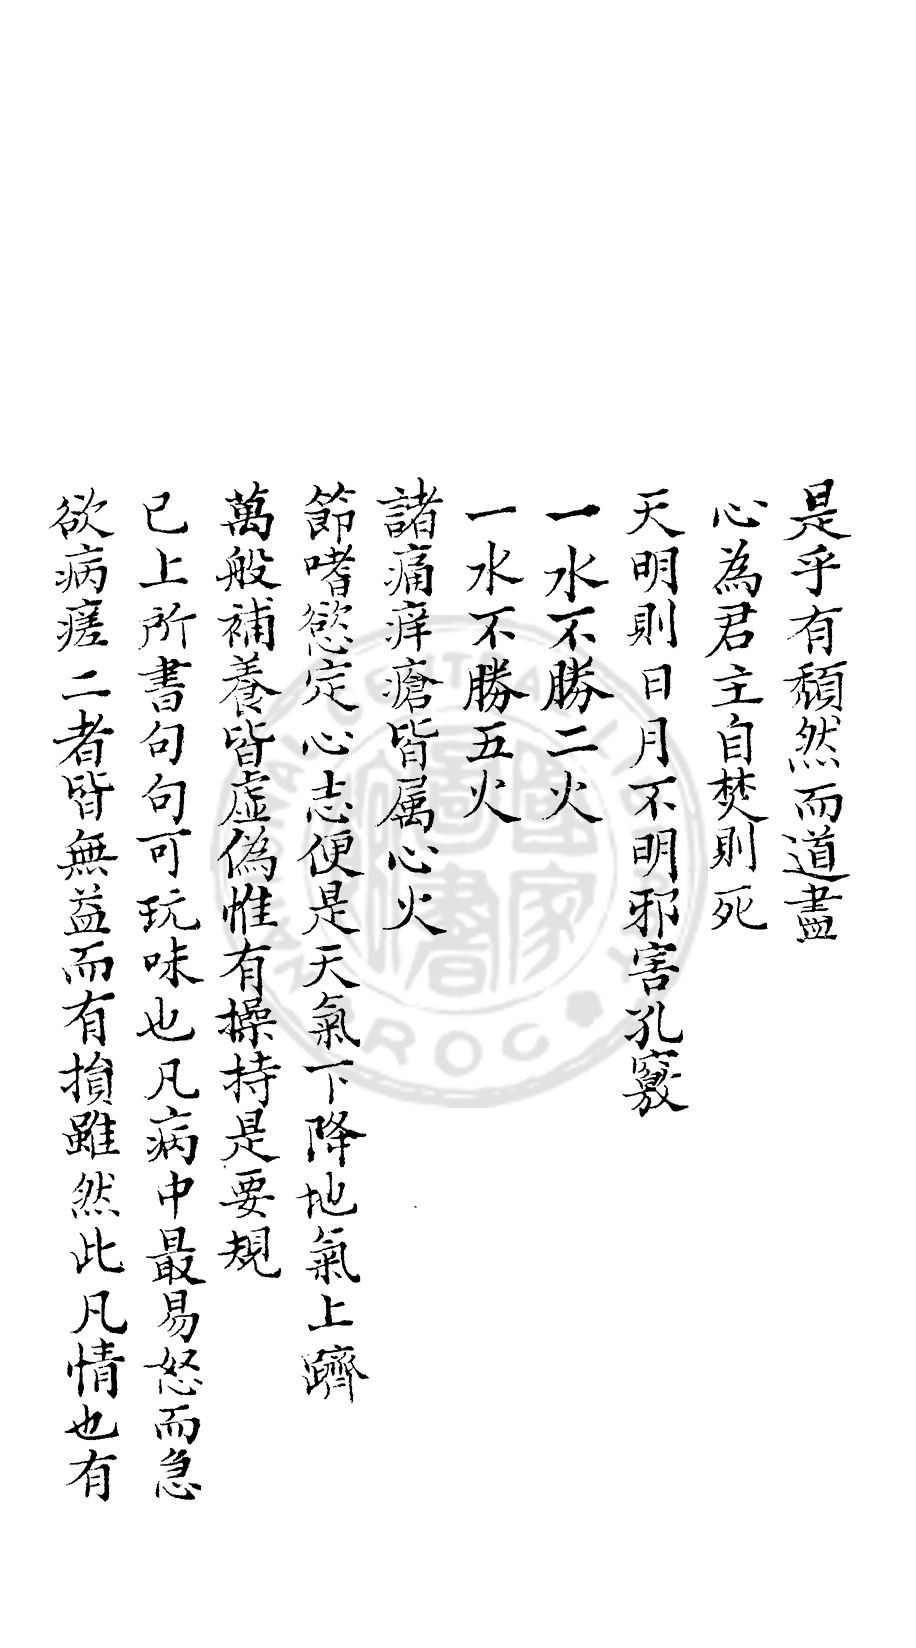 是乎有頹然而道盡
心為君主自焚則死
天明則日月不明邪害孔竅
一水不勝二火
一水不勝五火
諸痛痒瘡皆属心火
節嗜慾定心志便是天氣下降地氣上躋
萬般補養皆虛偽惟有操持是要規
已上所書句句可玩味也凡病中最易怒而急
欲病瘥二者皆無益而有損雖然此凡情也有